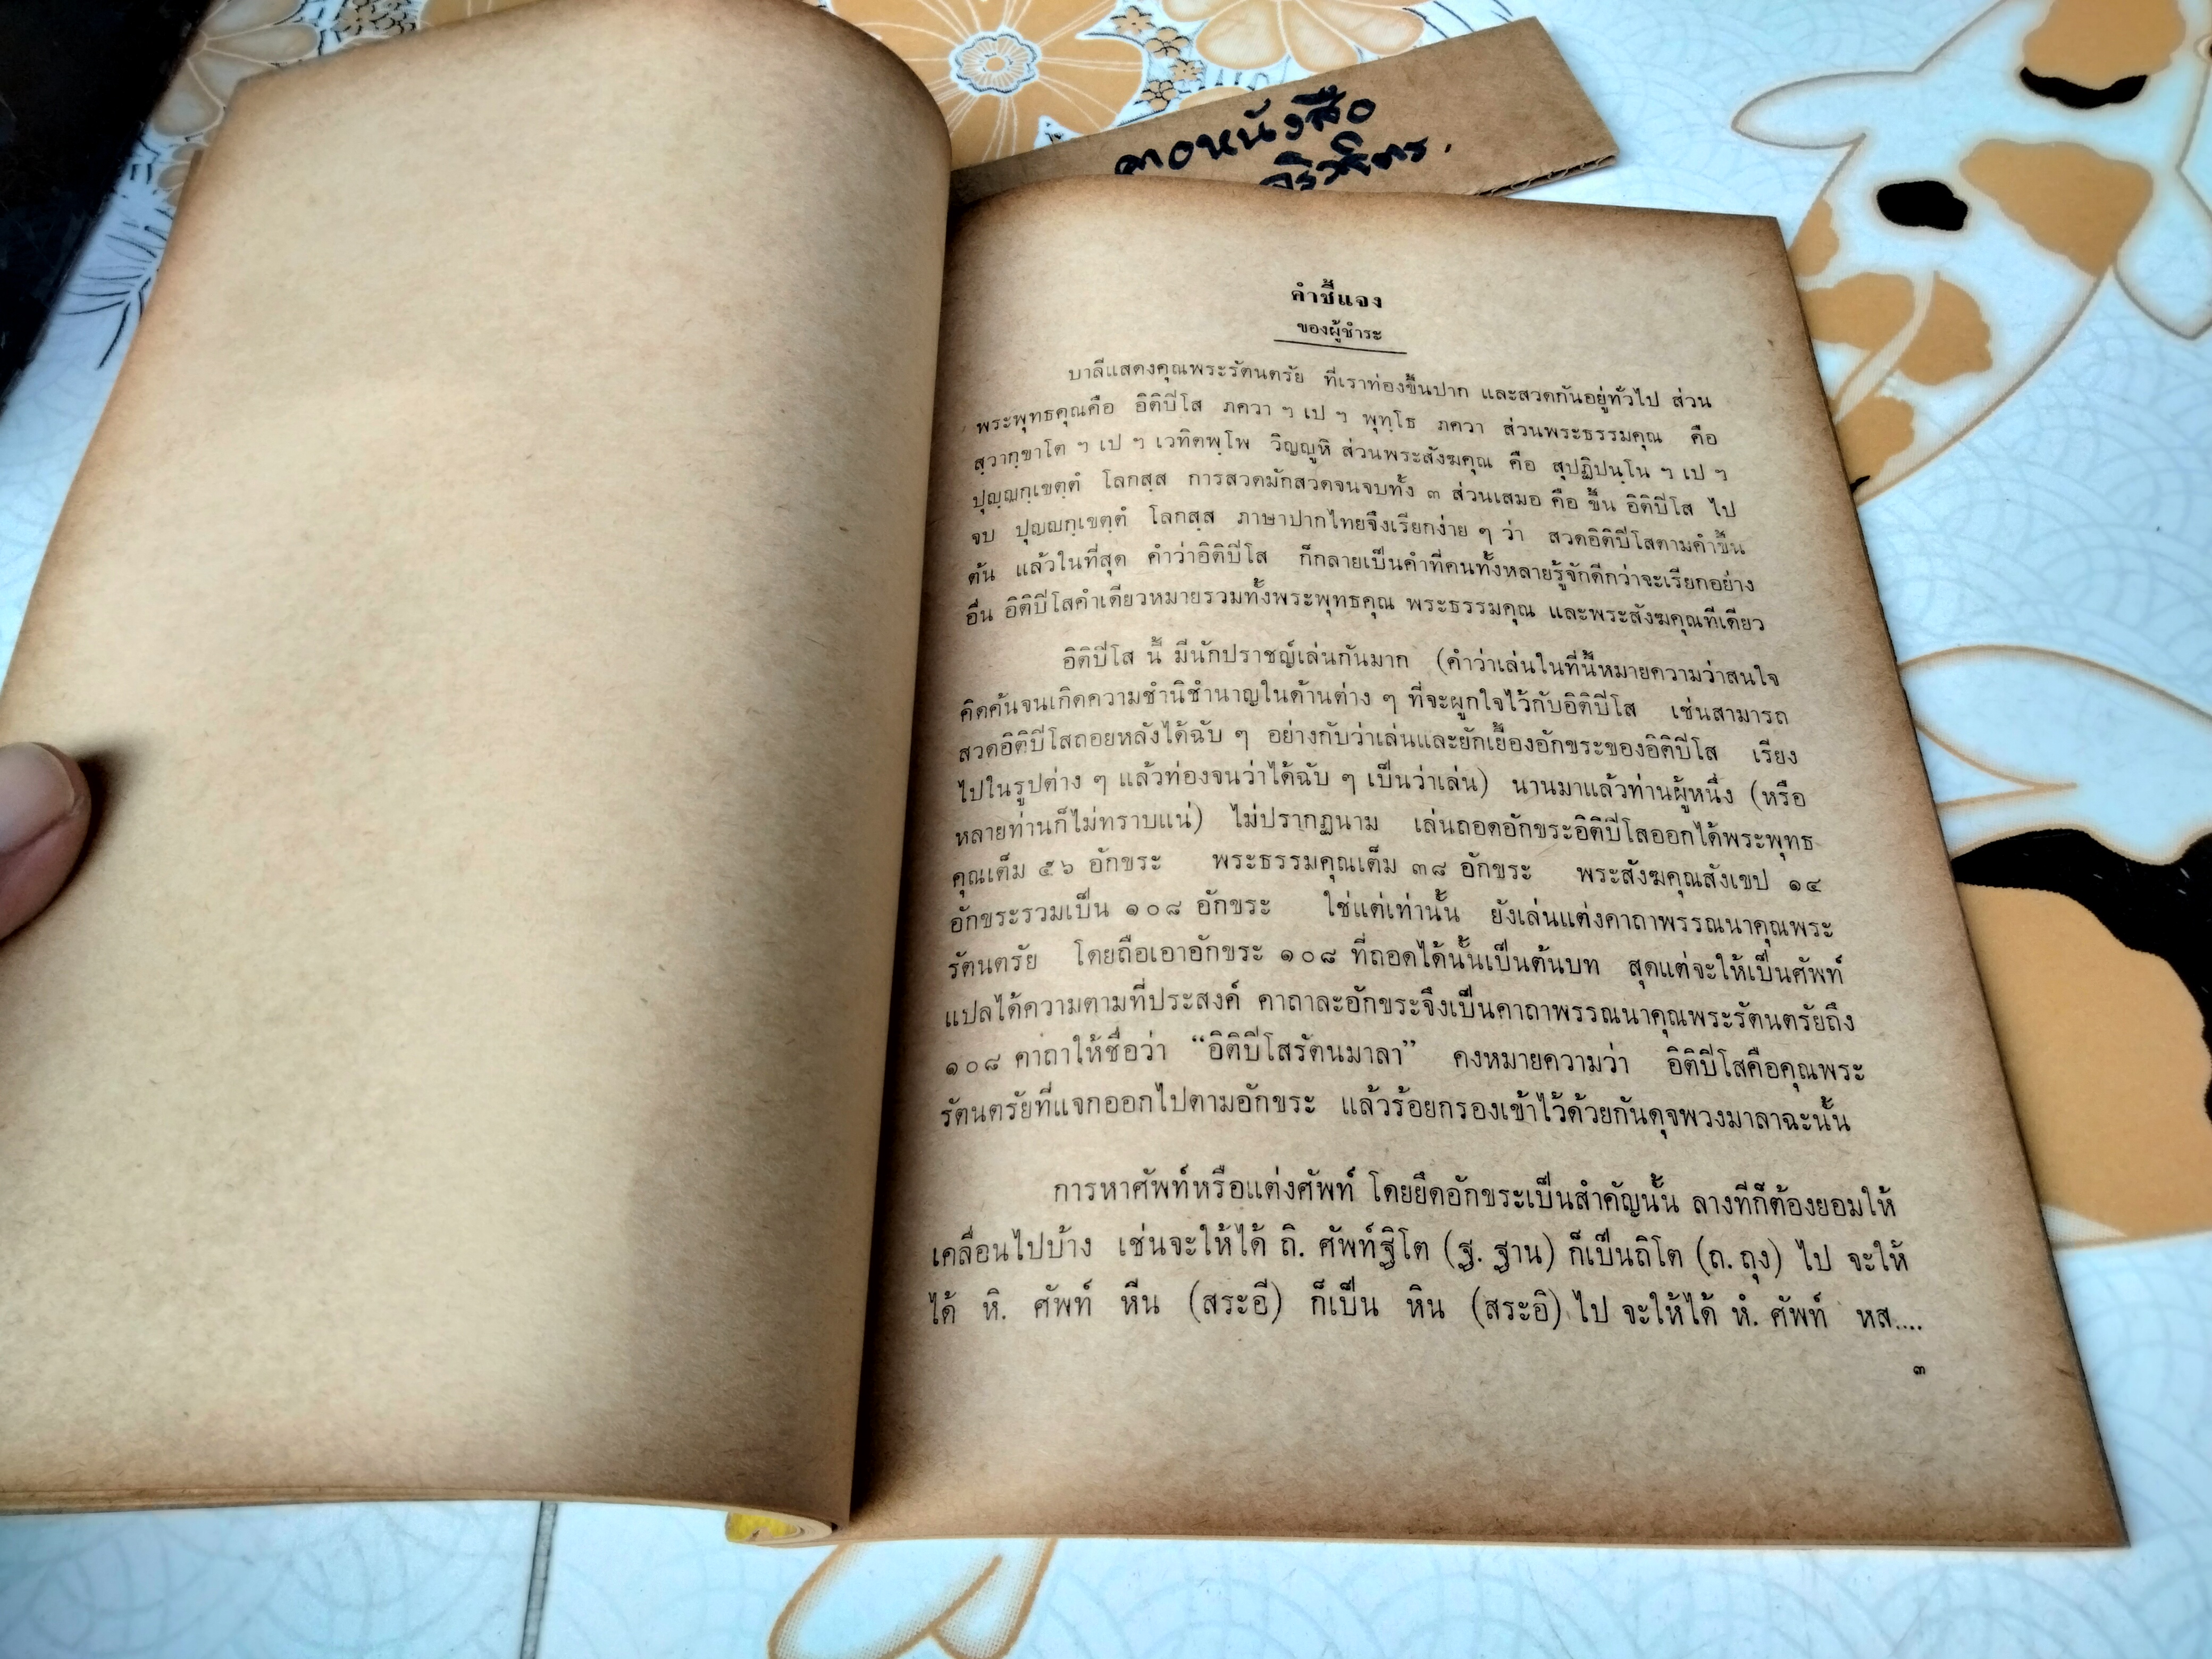 ตอหนังสือ
คำชี้แจง
ของผู้ชำระ
บาลีแสดงคุณพระรัตนตรัย ที่เราท่องขึ้นปาก และสวดกันอยู่ทั่วไป ส่วน
พระพุทธคุณคือ อิติปิโส ภควา ฯ เป ฯ พุทฺโธ ภควา ส่วนพระธรรมคุณ คือ
สฺวากฺขาโต ฯ เป ฯ เวทิตพฺโพ วิญญูหิ ส่วนพระสังฆคุณ คือ สุปฏิปนฺโน ฯ เป ฯ
ปุญฺญกฺเขตฺตํ โลกสฺส การสวดมักสวดจนจบทั้ง ๓ ส่วนเสมอ คือ ขึ้น อิติปิโส ไป
จบ ปุญฺญกฺเขตฺตํ โลกสฺส ภาษาปากไทยจึงเรียกง่าย ๆ ว่า สวดอิติปิโสตามคำขึ้น
ต้น แล้วในที่สุด คำว่าอิติปิโส ก็กลายเป็นคำที่คนทั้งหลายรู้จักดีกว่าจะเรียกอย่าง
อื่น อิติปิโสคำเดียวหมายรวมทั้งพระพุทธคุณ พระธรรมคุณ และพระสังฆคุณทีเดียว
อิติปิโส นี้ มีนักปราชญ์เล่นกันมาก (คำว่าเล่นในที่นี้หมายความว่าสนใจ
คิดค้นจนเกิดความชำนิชำนาญในด้านต่าง ๆ ที่จะผูกใจไว้กับอิติปิโส เช่นสามารถ
สวดอิติปิโสถอยหลังได้ฉับ ๆ อย่างกับว่าเล่นและยักเยื้องอักขระของอิติปิโส เรียง
ไปในรูปต่าง ๆ แล้วท่องจนว่าได้ฉับ ๆ เป็นว่าเล่น) นานมาแล้วท่านผู้หนึ่ง (หรือ
หลายท่านก็ไม่ทราบแน่) ไม่ปรากฏนาม เล่นถอดอักขระอิติปิโสออกได้พระพุทธ
คุณเต็ม ๕๖ อักขระ พระธรรมคุณเต็ม ๓๘ อักขระ พระสังฆคุณสังเขป ๑๔
อักขระรวมเป็น ๑๐๘ อักขระ ใช่แต่เท่านั้น ยังเล่นแต่งคาถาพรรณนาคุณพระ
รัตนตรัย โดยถือเอาอักขระ ๑๐๘ ที่ถอดได้นั้นเป็นต้นบท สุดแต่จะให้เป็นศัพท์
แปลได้ความตามที่ประสงค์ คาถาละอักขระจึงเป็นคาถาพรรณนาคุณพระรัตนตรัยถึง
๑๐๘ คาถาให้ชื่อว่า “อิติปิโสรัตนมาลา” คงหมายความว่า อิติปิโสคือคุณพระ
รัตนตรัยที่แจกออกไปตามอักขระ แล้วร้อยกรองเข้าไว้ด้วยกันดุจพวงมาลาฉะนั้น
การหาศัพท์หรือแต่งศัพท์ โดยยึดอักขระเป็นสำคัญนั้น ลางทีก็ต้องยอมให้
เคลื่อนไปบ้าง เช่นจะให้ได้ ถิ. ศัพท์ฐิโต (ฐ. ฐาน) ก็เป็นถิโต (ถ. ถุง) ไป จะให้
ได้ หิ. ศัพท์ หีน (สระอี) ก็เป็น หิน (สระอิ) ไป จะให้ได้ หํ. ศัพท์ หส....
๓